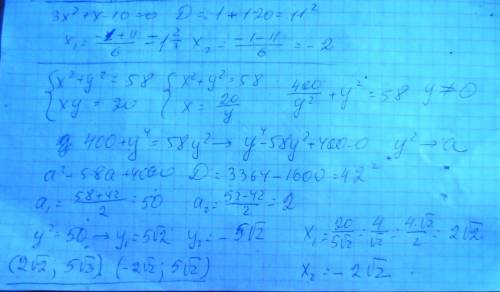 3x² + x - 10 = 0   D = 1 + 120 = 11²
x₁ = (-1 + 11)/6 = 1 2/3   x₂ = (-1 - 11)/6 = -2
{x² + y² = 58   {x² + y² = 58   400/y² + y² = 58   y ≠ 0
{xy = 20   {x = 20/y
400 + y⁴ = 58y² → y⁴ - 58y² + 400 = 0   y² → a
a² - 58a + 400   D = 3364 - 1600 = 42²
a₁ = (58 + 42)/2 = 50   a₂ = (52 - 42)/2 = 2
y² = 50 → y₁ = 5√2   y₂ = -5√2   x₁ = 20/(5√2) = 4/√2 = (4·√2)/2 = 2√2
(2√2; 5√2) (-2√2; 5√2)   x₂ = -2√2